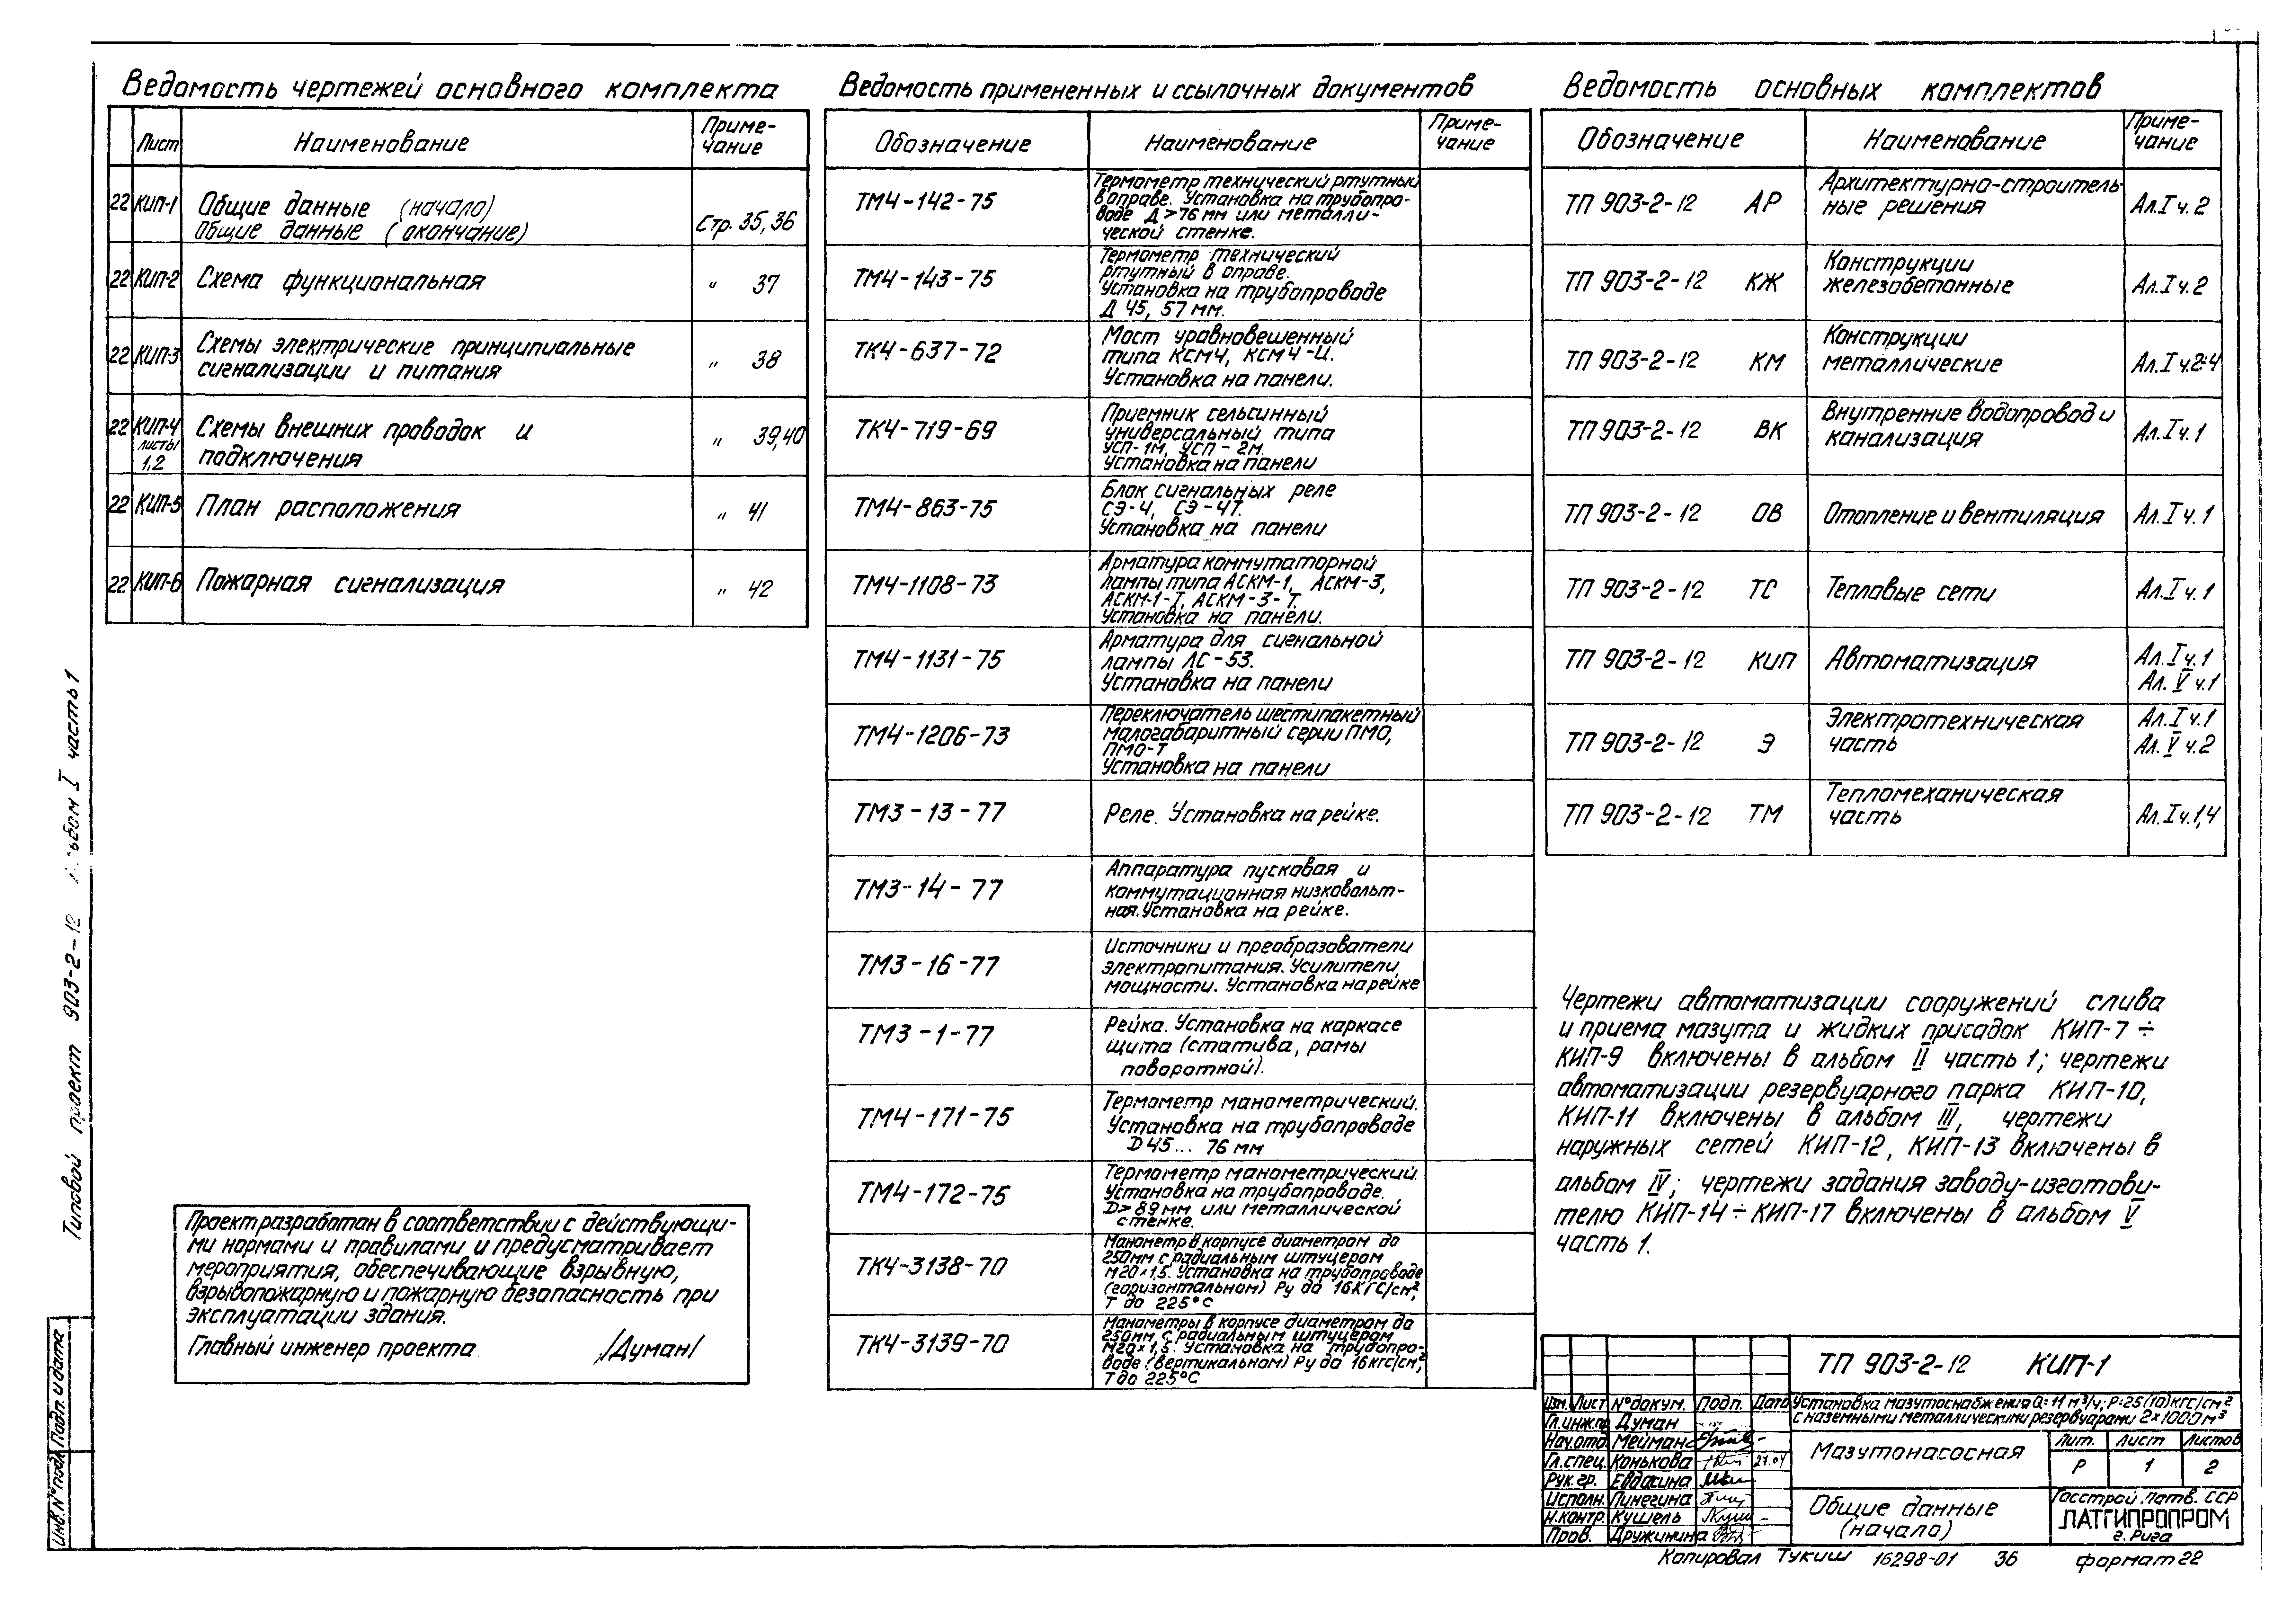 Ведомость чертежей основного комплекта
Лист Наименование Приме-
чание
22 КИП-1 Общие данные (начало)
Общие данные (окончание) Стр. 35, 36
22 КИП-2 Схема функциональная " 37
22 КИП-3 Схемы электрические принципиальные
сигнализации и питания " 38
22 КИП-4 Схемы внешних проводок и " 39,40
листы
1,2 подключения
22 КИП-5 План расположения " 41
22 КИП-6 Пожарная сигнализация " 42
Проект разработан в соответствии с действующи-
ми нормами и правилами и предусматривает
мероприятия, обеспечивающие взрывную,
взрывопожарную и пожарную безопасность при
эксплуатации здания.
Главный инженер проекта /Думан/
Ведомость примененных и ссылочных документов
Обозначение Наименование Приме-
чание
ТМ4-142-75 Термометр технический ртутный
в оправе. Установка на трубопро-
воде Д>76 мм или металли-
ческой стенке.
ТМ4-143-75 Термометр технический
ртутный в оправе.
Установка на трубопроводе
Д 45, 57 мм.
ТК4-637-72 Мост уравновешенный
типа КСМ4, КСМ4-И.
Установка на панели.
ТК4-719-69 Приемник сельсинный
универсальный типа
УСП-1М, УСП-2М.
Установка на панели
ТМ4-863-75 Блок сигнальных реле
СЭ-4, СЭ-4Т.
Установка на панели
ТМ4-1108-73 Арматура коммутаторной
лампы типа АСКМ-1, АСКМ-3,
АСКМ-1-Т, АСКМ-3-Т.
Установка на панели.
ТМ4-1131-75 Арматура для сигнальной
лампы ЛС-53.
Установка на панели
ТМ4-1206-73 Переключатель шестипакетный
малогабаритный серии ПМО,
ПМО-Т
Установка на панели
ТМ3-13-77 Реле. Установка на рейке.
ТМ3-14-77 Аппаратура пусковая и
коммутационная низковольт-
ная. Установка на рейке.
ТМ3-16-77 Источники и преобразователи
электропитания. Усилители
мощности. Установка на рейке
ТМ3-1-77 Рейка. Установка на каркасе
щита (статива, рамы
поворотной).
ТМ4-171-75 Термометр манометрический.
Установка на трубопроводе
D 45... 76 мм
ТМ4-172-75 Термометр манометрический.
Установка на трубопроводе.
D>89 мм или металлической
стенке.
ТК4-3138-70 Манометр в корпусе диаметром до
250мм с радиальным штуцером
М20×1,5. Установка на трубопроводе
(горизонтальном) Ру до 16кгс/см²,
Т до 225°С
ТК4-3139-70 Манометры в корпусе диаметром до
250мм, с радиальным штуцером
М20×1,5. Установка на трубопро-
воде (вертикальном) Ру до 16кгс/см²,
Т до 225°С
Ведомость основных комплектов
Обозначение Наименование Приме-
чание
ТП 903-2-12 АР Архитектурно-строитель-
ные решения Ал.I ч.2
ТП 903-2-12 КЖ Конструкции
железобетонные Ал.I ч.2
ТП 903-2-12 КМ Конструкции
металлические Ал.I ч.2÷4
ТП 903-2-12 ВК Внутренние водопровод и
канализация Ал.I ч.1
ТП 903-2-12 ОВ Отопление и вентиляция Ал.I ч.1
ТП 903-2-12 ТС Тепловые сети Ал.I ч.1
ТП 903-2-12 КИП Автоматизация Ал.I ч.1
Ал. V ч.1
ТП 903-2-12 Э Электротехническая
часть Ал.I ч.1
Ал. V ч.2
ТП 903-2-12 ТМ Тепломеханическая
часть Ал.I ч.1,4
Чертежи автоматизации сооружений слива
и приема мазута и жидких присадок КИП-7÷
КИП-9 включены в альбом II часть 1; чертежи
автоматизации резервуарного парка КИП-10,
КИП-11 включены в альбом III, чертежи
наружных сетей КИП-12, КИП-13 включены в
альбом IV; чертежи задания заводу-изготови-
телю КИП-14÷КИП-17 включены в альбом V
часть 1.
ТП 903-2-12 КИП-1
Изм. Лист №докум. Подп. Дата
Установка мазутоснабжения Q=11 м³/ч; Р=25(10)кгс/см²
с наземными металлическими резервуарами 2×1000 м³
Гл.инж.пр Думан
Нач.отд. Мейман
Гл.спец. Конькова 27.04
Рук.гр. Евдасина
Исполн. Пинегина
Н.контр. Кушель
Пров. Дружинина
Мазутонасосная
Лит. Лист Листов
Р 1 2
Общие данные
(начало)
Госстрой Латв. ССР
ЛАТГИПРОПРОМ
г. Рига
Копировал Тукиш 16298-01 36 формат 22
Типовой проект 903-2-12 Альбом I часть 1
Инв.№подл. Подп. и дата